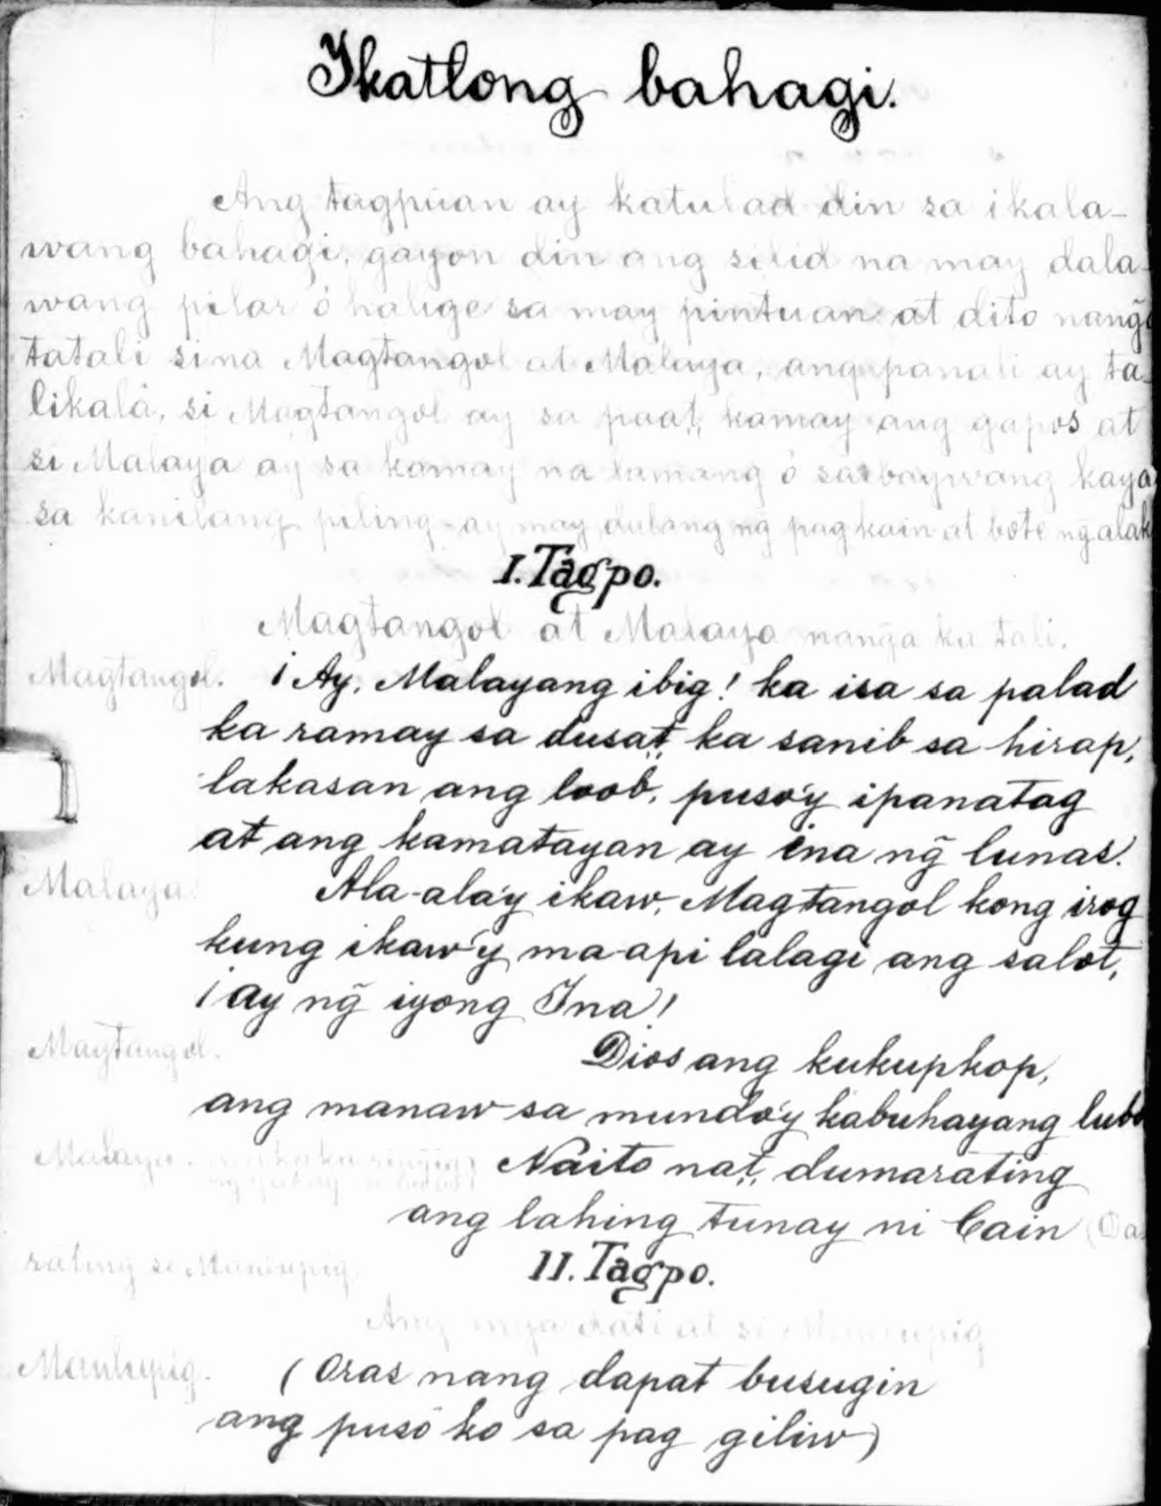 Ikatlong bahagi.
Ang tagpuan ay katulad din sa ikala-
wang bahagi, gayon din ang silid na may dala-
wang pilar ó halige sa may pintuan at dito nang̃a
tatali sina Magtangol at Malaya, ang panali ay ta-
likalá, si Magtangol ay sa paa't, kamay ang gapos at
si Malaya ay sa kamay na lamang ó sa baywang kaya
sa kanilang piling ay may dulang ng̃ pagkain at bote ng̃ alak
I. Tagpo.
Magtangol at Malaya nang̃a ka tali.
Magtangol. ¡Ay, Malayang ibig! ka isa sa palad
ka ramay sa dusa't, ka sanib sa hirap,
lakasan ang loob, puso'y ipanatag
at ang kamatayan ay ina ng̃ lunas.
Malaya. Ala-ala'y ikaw, Magtangol kong irog
kung ikaw'y ma-api lalagi ang salot,
¡ay ng̃ iyong Ina!
Magtangol. Dios ang kukupkop,
ang manaw sa mundo'y kabuhayang lubo
Malaya. Naito na't, dumarating
ang lahing tunay ni Cain (Da
rating si Manlupig.
II. Tagpo.
Ang mga dati at si Manlupig
Manlupig. (Oras nang dapat busugin
ang puso ko sa pag giliw)